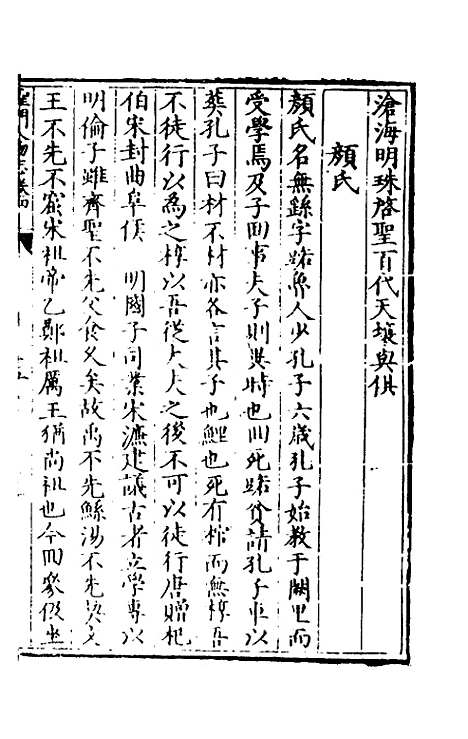 滄海明珠啓聖百代天壤與俱
顏氏
顏氏名無繇字路魯人少孔子六歲孔子始教于闕里而
受學焉及子回事夫子則異時也回死路貧請孔子車以
葬孔子曰材不材亦各言其子也鯉也死有棺而無椁吾
不徒行以為之椁以吾從大夫之後不可以徒行唐贈杞
伯宋封曲阜侯 明國子司業宋濂建議古者立學專以
明倫子雖齊聖不先父食久矣故禹不先鯀湯不先契文
王不先不窋宋祖帝乙鄭祖厲王猶尚祖也今回參伋坐
聖門人物志卷四